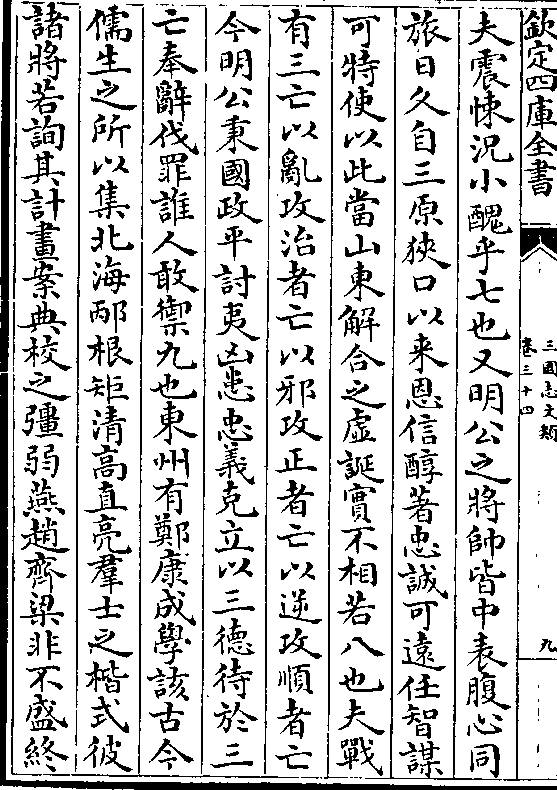 欽定四庫全書
三國志文類
卷三十四
九
夫震悚況小醜乎七也又明公之將帥皆中表腹心同
旅日久自三原狹口以来恩信醇著忠誠可遠任智謀
可特使以此當山東解合之虚誕實不相若八也夫戰
有三亡以亂攻治者亡以邪攻正者亡以逆攻順者亡
今明公秉國政平討夷凶恚忠義克立以三德待於三
亡奉辭伐罪誰人敢禦九也東州有鄭康成學該古今
儒生之所以集北海邴根矩清高直亮羣士之楷式彼
諸將若詢其計畫案典校之彊弱燕趙齊梁非不盛終